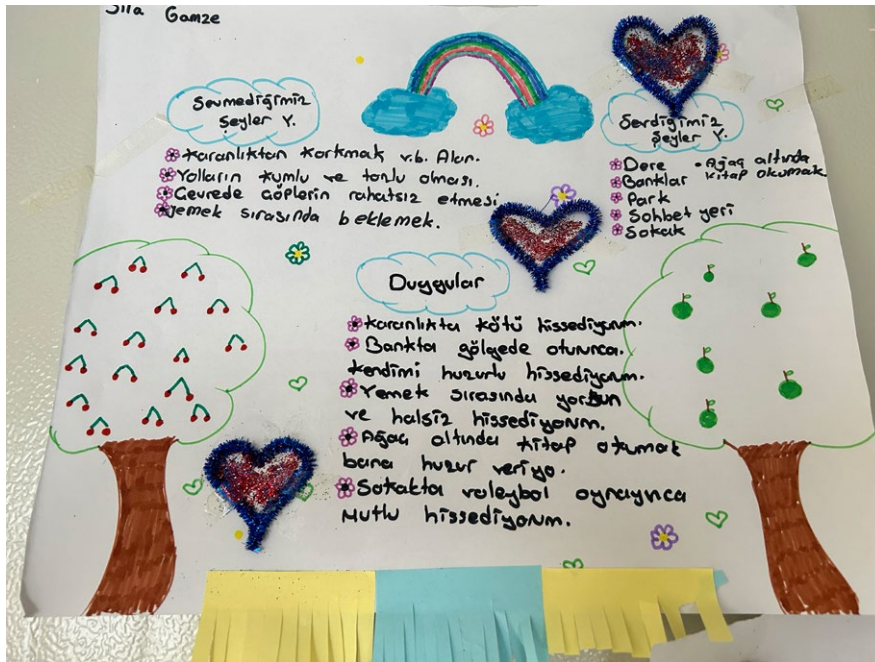 Sıla Gamze
Sevmediğimiz
Şeyler Y.
Karanlıktan korkmak v.b. Alan.
Yolların kumlu ve tozlu olması.
Çevrede Çöplerin rahatsız etmesi
yemek sırasında beklemek.
Sevdiğimiz
Şeyler Y.
Dere
Banklar
Park
Sohbet yeri
Sokak
• Ağaç altında
kitap okumak
Duygular
Karanlıkta kötü hissediyorum.
Bankta gölgede oturunca.
kendimi huzurlu hissediyorum.
Yemek sırasında yorgun
ve halsiz hissediyorum.
Ağaç altında kitap okumak
bana huzur veriyo.
Sokakta voleybol oynayınca
Mutlu hissediyorum.